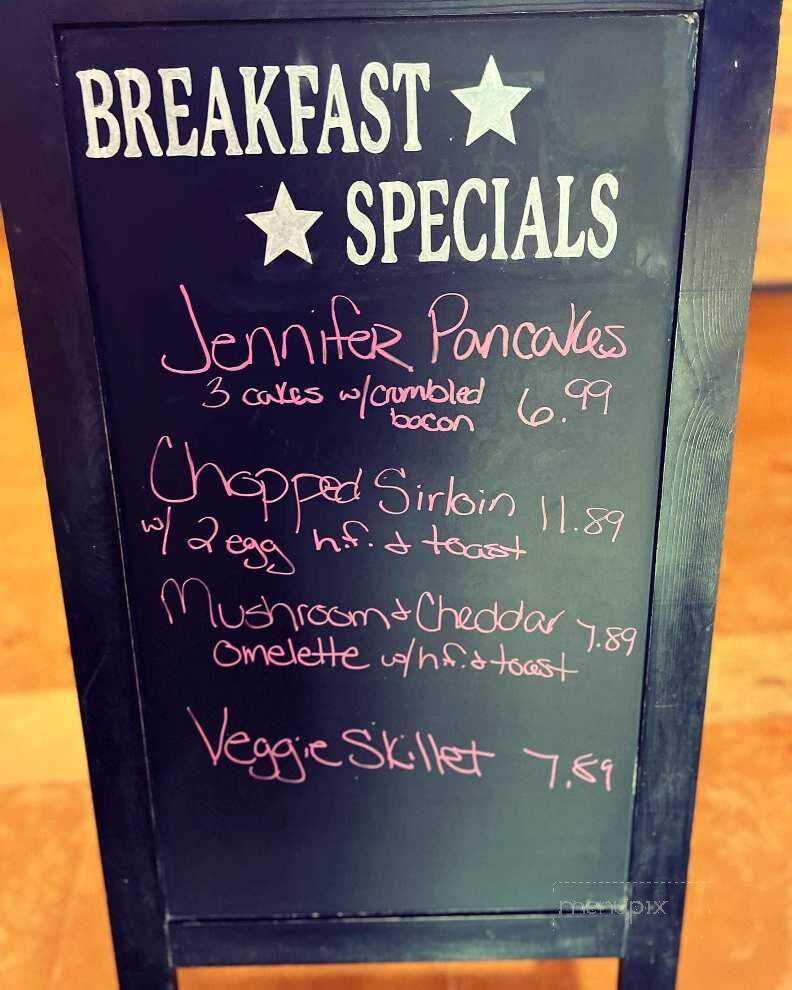 BREAKFAST
SPECIALS
Jennifer Pancakes
3 cakes w/crumbled
bacon 6.99
Chopped Sirloin 11.89
w/ 2 egg h.f. & toast
Mushroom & Cheddar 7.89
omelette w/h.f. & toast
Veggie Skillet 7.89
menupix